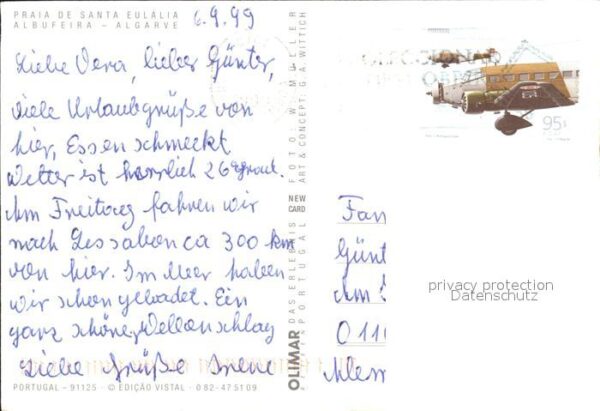 PRAIA DE SANTA EULÁLIA
ALBUFEIRA - ALGARVE
6.9.99
Liebe Vera, lieber Günter,
viele Urlaubsgrüße von
hier, Essen schmeckt
Wetter ist herrlich 26 grad.
Am Freitag fahren wir
nach Lessabon ca 300 km
von hier. Im Meer haben
wir schon gebadet. Ein
ganz schöner Wellenschlag
Liebe Grüße Irene
PORTUGAL - 91125 - © EDIÇÃO VISTAL - 082-475109
FOTO: W. MÜLLER
ART & CONCEPT: G. A. WITTICH
NEW CARD
OLIMAR DAS ERLEBNIS
REISEN PORTUGAL
95$
Fam
Günt
Am
011
Klem
privacy protection
Datenschutz